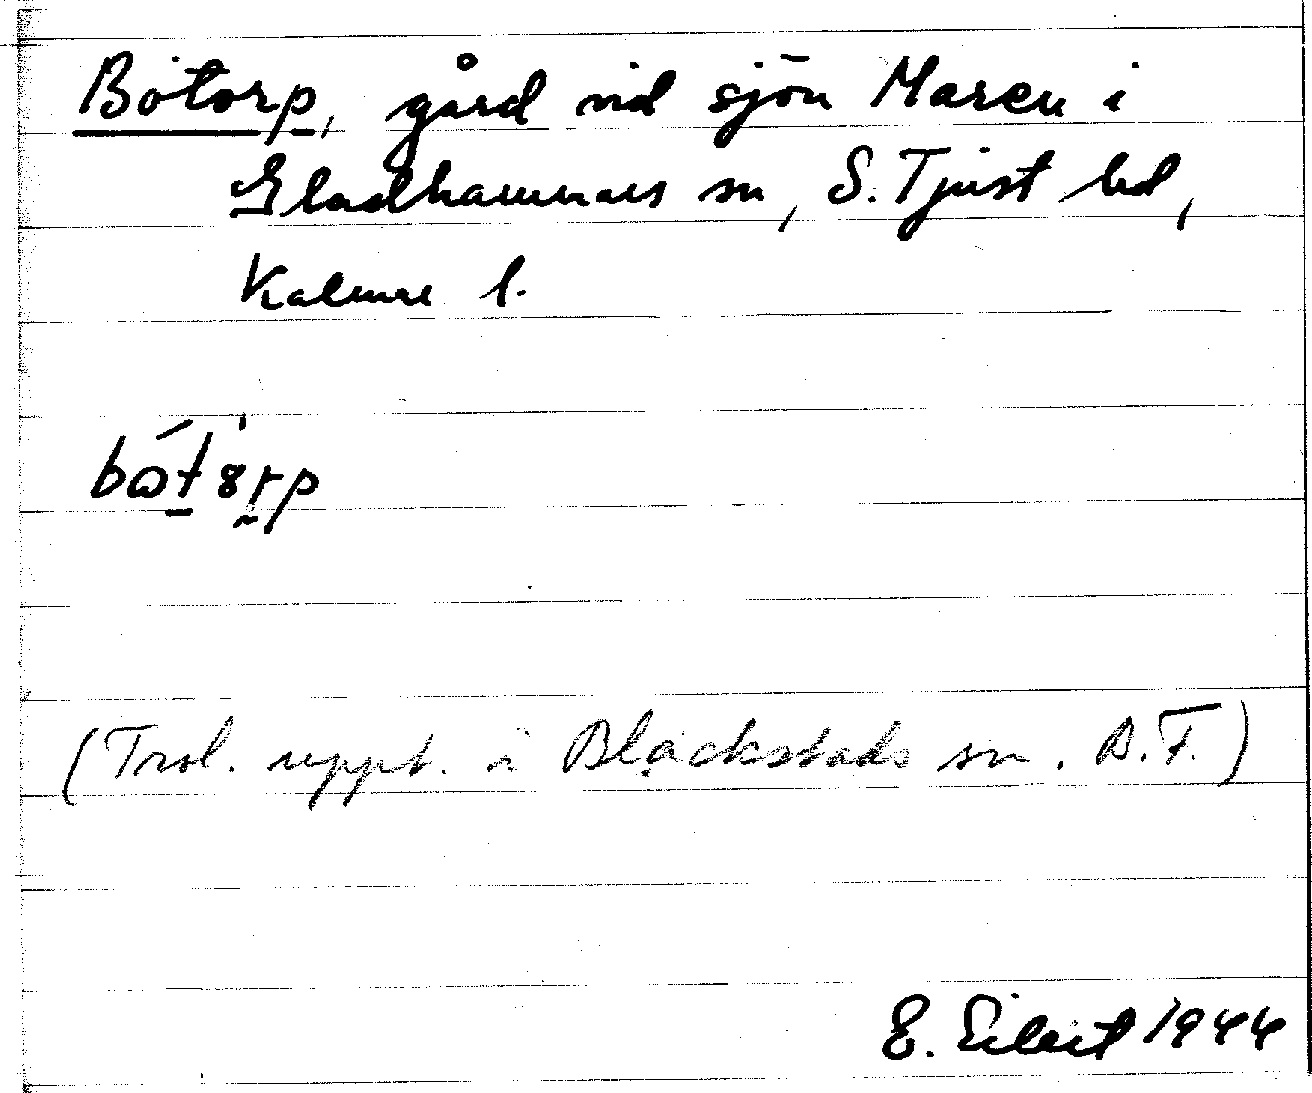 Botorp, gård vid sjön Maren i
Gladhammars sn, S. Tjust hd,
Kalmar l.
(Trol. uppt. i Blackstads sn. B.F.)
E. Eilert 1944